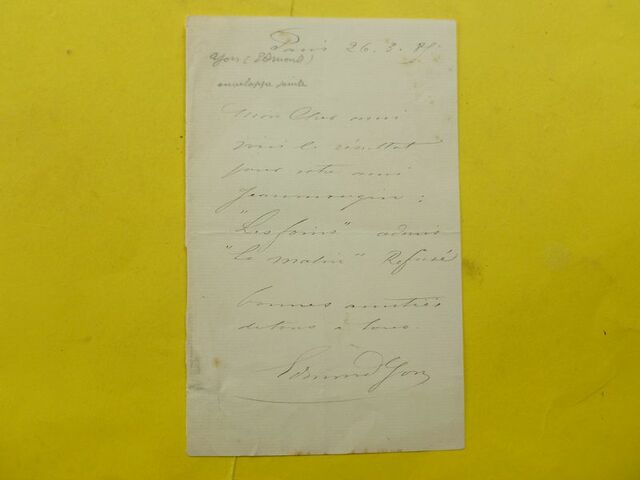 Paris 26. 3. 85
Yon (Edmond)
enveloppe jointe
Mon Cher ami
voici le résultat
pour votre ami
Jeanmougin :
"Les foins" admis
"Le matin" Refusé
bonnes amitiés
de tous à tous.
Edmond Yon